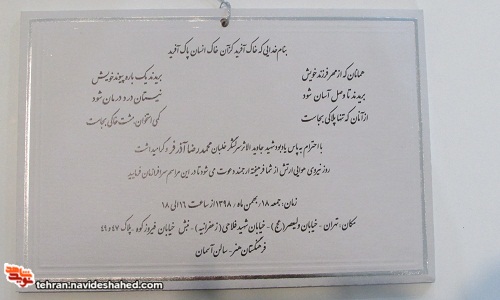 بنام خدایی که خاک آفرید کز آن خاک انسان پاک آفرید
همانان که از مهر فرزند خویش بریدند یک باره پیوند خویش
بریدند تا وصل آسان شود نیستان درد درمان شود
از آنان که تنها پلاکی بجاست کمی استخوان، مشت خاکی بجاست
با احترام به پاس یادبود شهید جاوید الاثر سرلشگر خلبان محمدرضا آذرفر و گرامیداشت
روز نیروی هوایی ارتش از شما فرهیخته ارجمند دعوت می شود تا در این مراسم سرافرازمان فرمایید
زمان: جمعه ۱۸ / بهمن ماه / ۱۳۹۸ از ساعت ۱۶ الی ۱۸
مکان: تهران - خیابان ولیعصر (عج) - خیابان شهید فلاحی (زعفرانیه) - نبش خیابان فیروزکوه - پلاک ۴۷ و ۴۹
فرهنگستان هنر - سالن آسمان
tehran.navideshahed.com